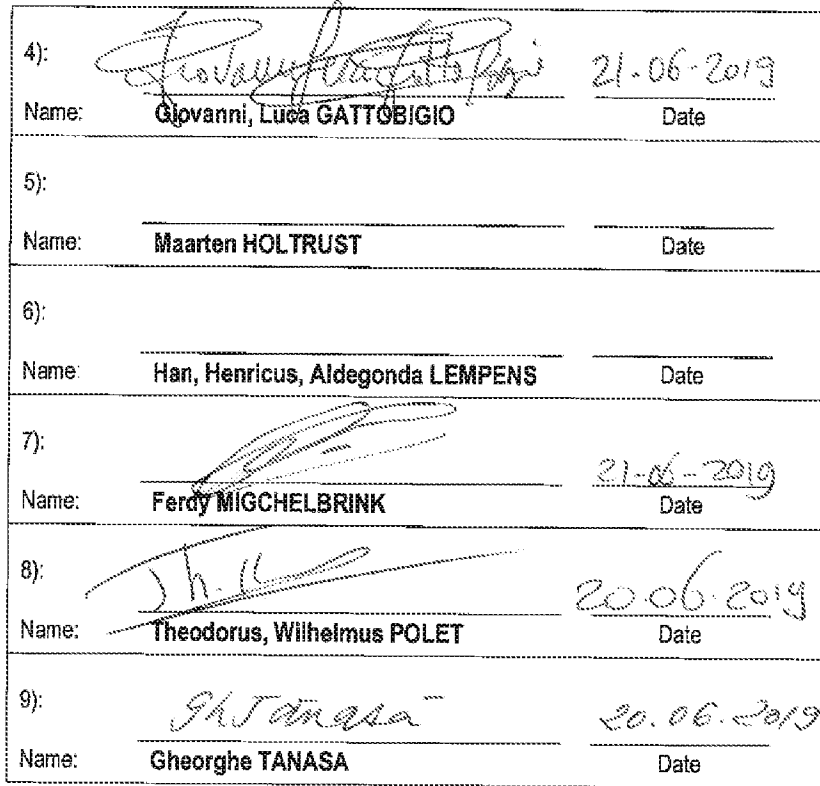 4): Giovanni Luca Gattobigio 21-06-2019
Name: Giovanni, Luca GATTOBIGIO Date
5):
Name: Maarten HOLTRUST Date
6):
Name: Han, Henricus, Aldegonda LEMPENS Date
7): 21-06-2019
Name: Ferdy MIGCHELBRINK Date
8): 20-06-2019
Name: Theodorus, Wilhelmus POLET Date
9): Gh Tănasă 20.06.2019
Name: Gheorghe TANASA Date